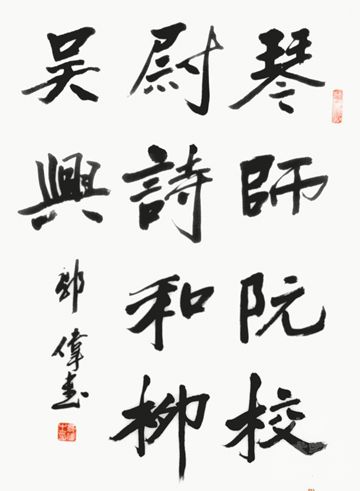 琴師阮校
尉詩和柳
吳興
郭偉書